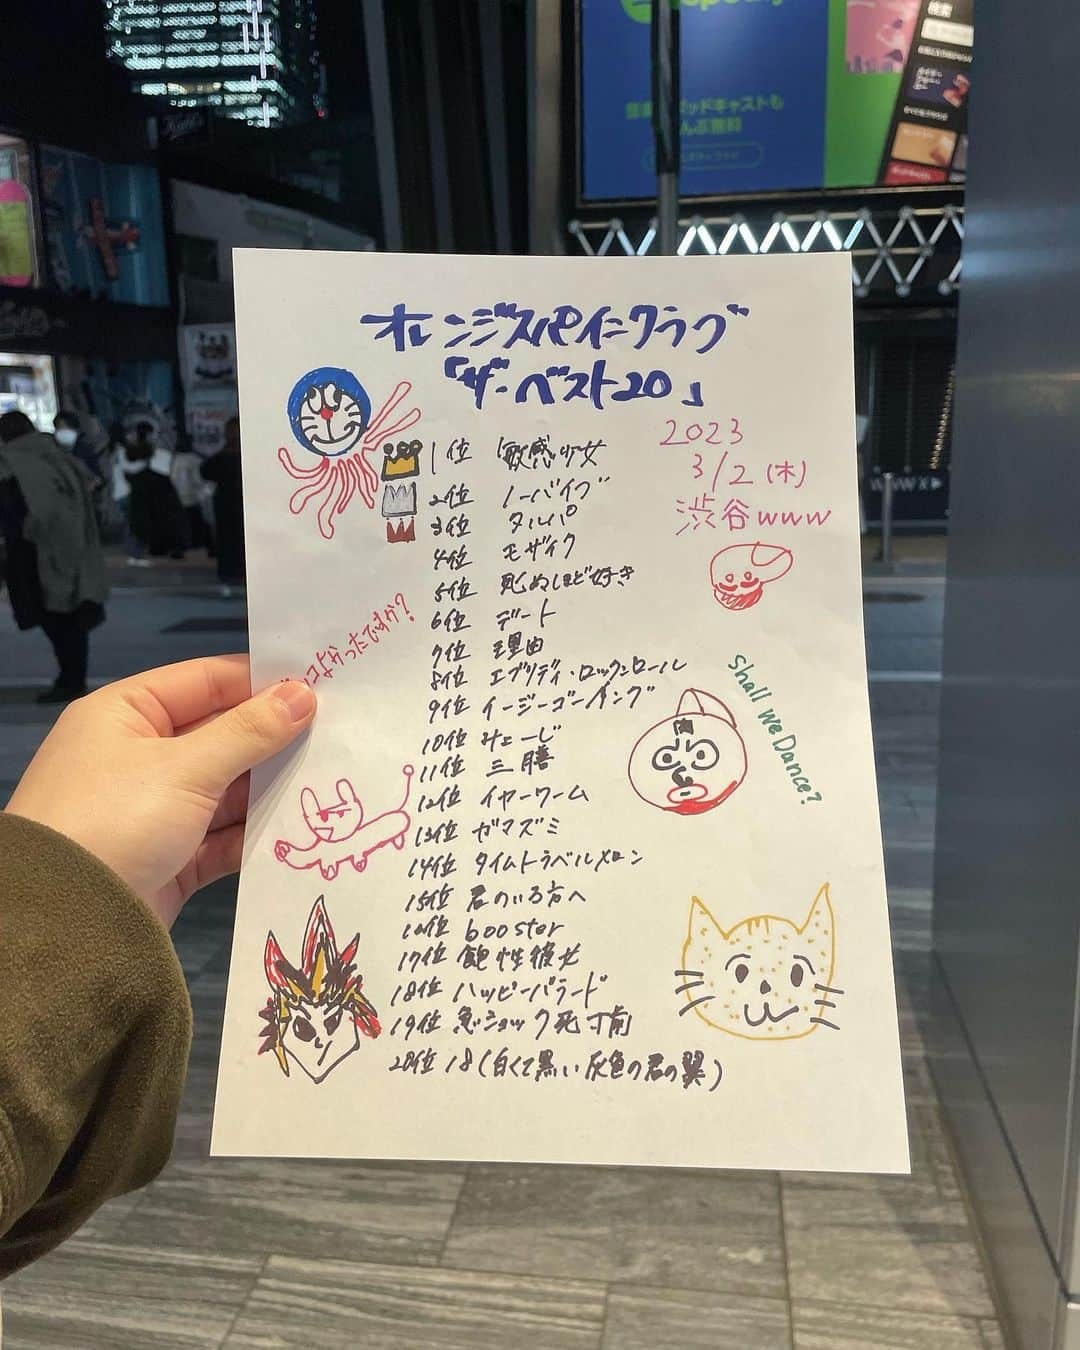 検索
ポッドキャストも
無料
Kiehl's
オレンジスパイニクラブ
「ザ・ベスト20」
2023
3/2 (木)
渋谷www
1位 敏感少女
2位 ノーバイブ
3位 タルパ
4位 モザイク
5位 死ぬほど好き
6位 デート
7位 理由
8位 エブリディ・ロックンロール
9位 イージーゴーイング
10位 みょーじ
11位 三膳
12位 イヤーワーム
13位 ガマズミ
14位 タイムトラベルメロン
15位 君のいる方へ
16位 booster
17位 飽性彼女
18位 ハッピーバラード
19位 急ショック死寸前
20位 18(白くて黒い灰色の君の翼)
コよかったですか?
Shall We Dance?
肉
WWW X